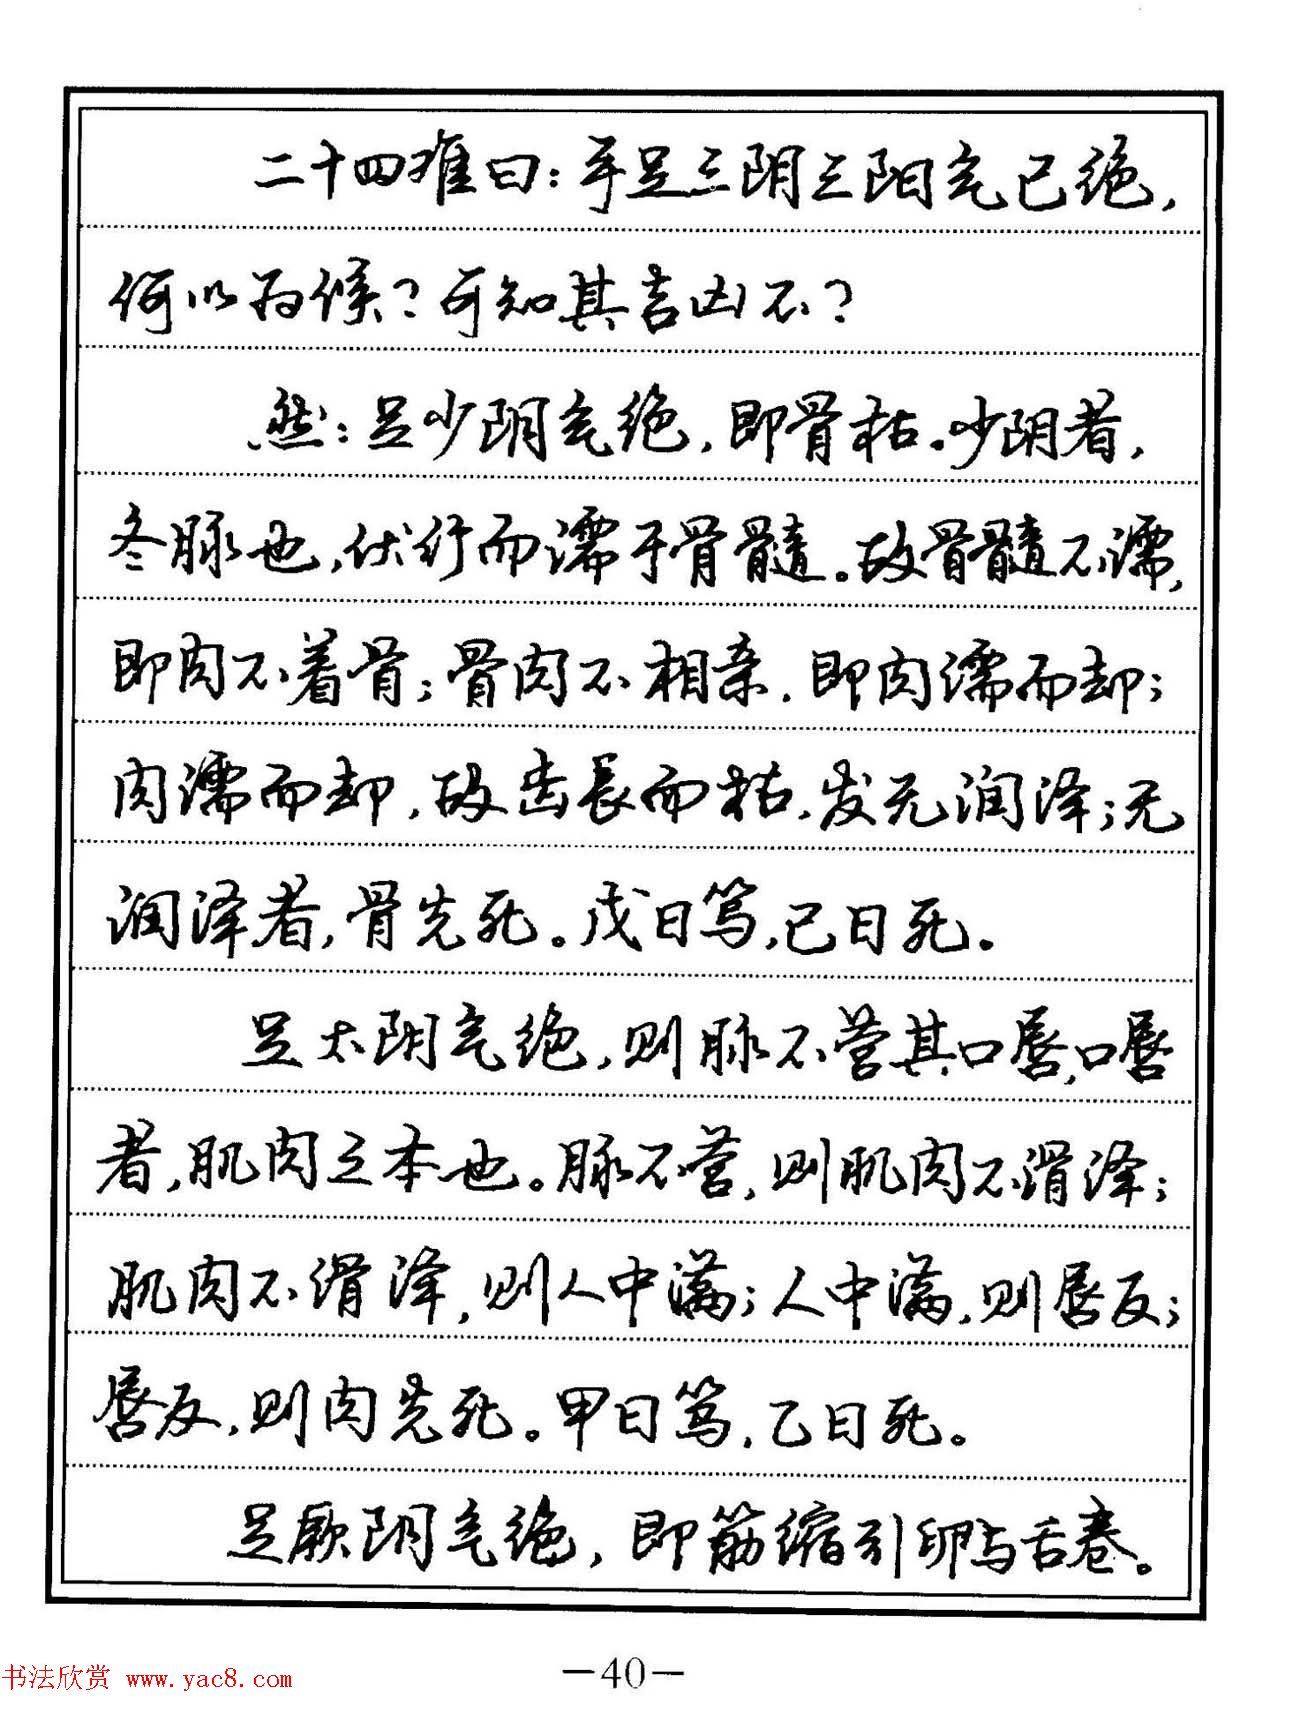 二十四难曰：手足三阴三阳气已绝，
何以为候？可知其吉凶不？
然：足少阴气绝，即骨枯。少阴者，
冬脉也，伏行而濡于骨髓。故骨髓不濡，
即肉不着骨；骨肉不相亲，即肉濡而却；
肉濡而却，故齿長而枯，发无润泽；无
润泽者，骨先死。戊日笃，己日死。
足太阴气绝，则脉不营其口唇，口唇
者，肌肉之本也。脉不营，则肌肉不滑泽；
肌肉不滑泽，则人中满；人中满，则唇反；
唇反，则肉先死。甲日笃，乙日死。
足厥阴气绝，即筋缩引卵与舌卷。
—40—
书法欣赏 www.yac8.com